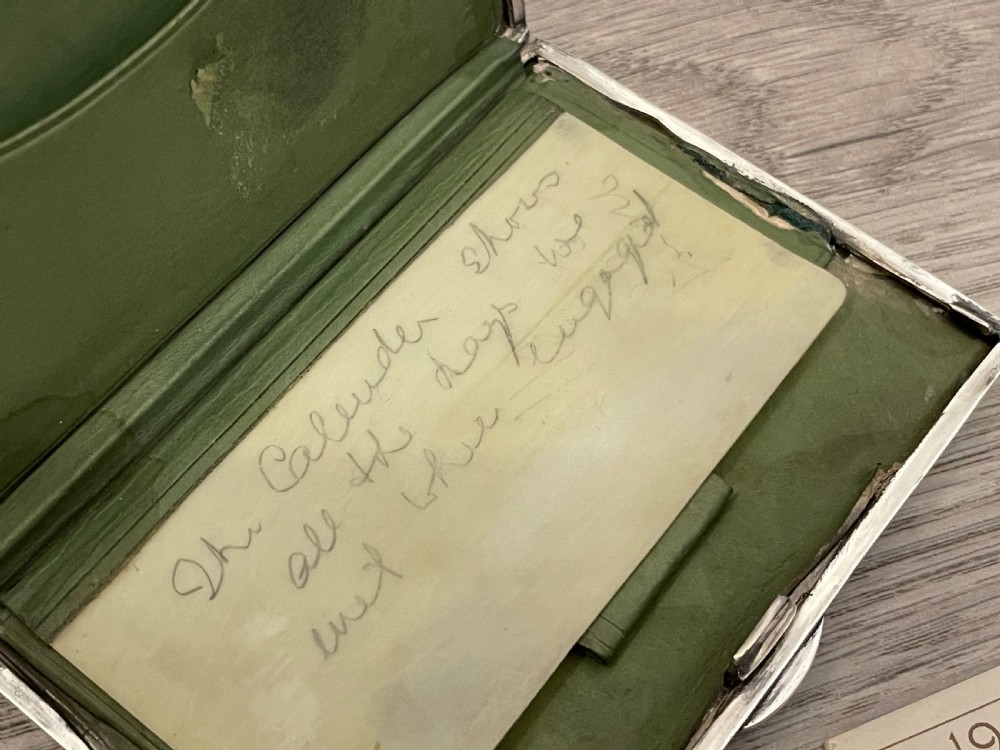 The Calender shows
all the days we
met when engaged
19